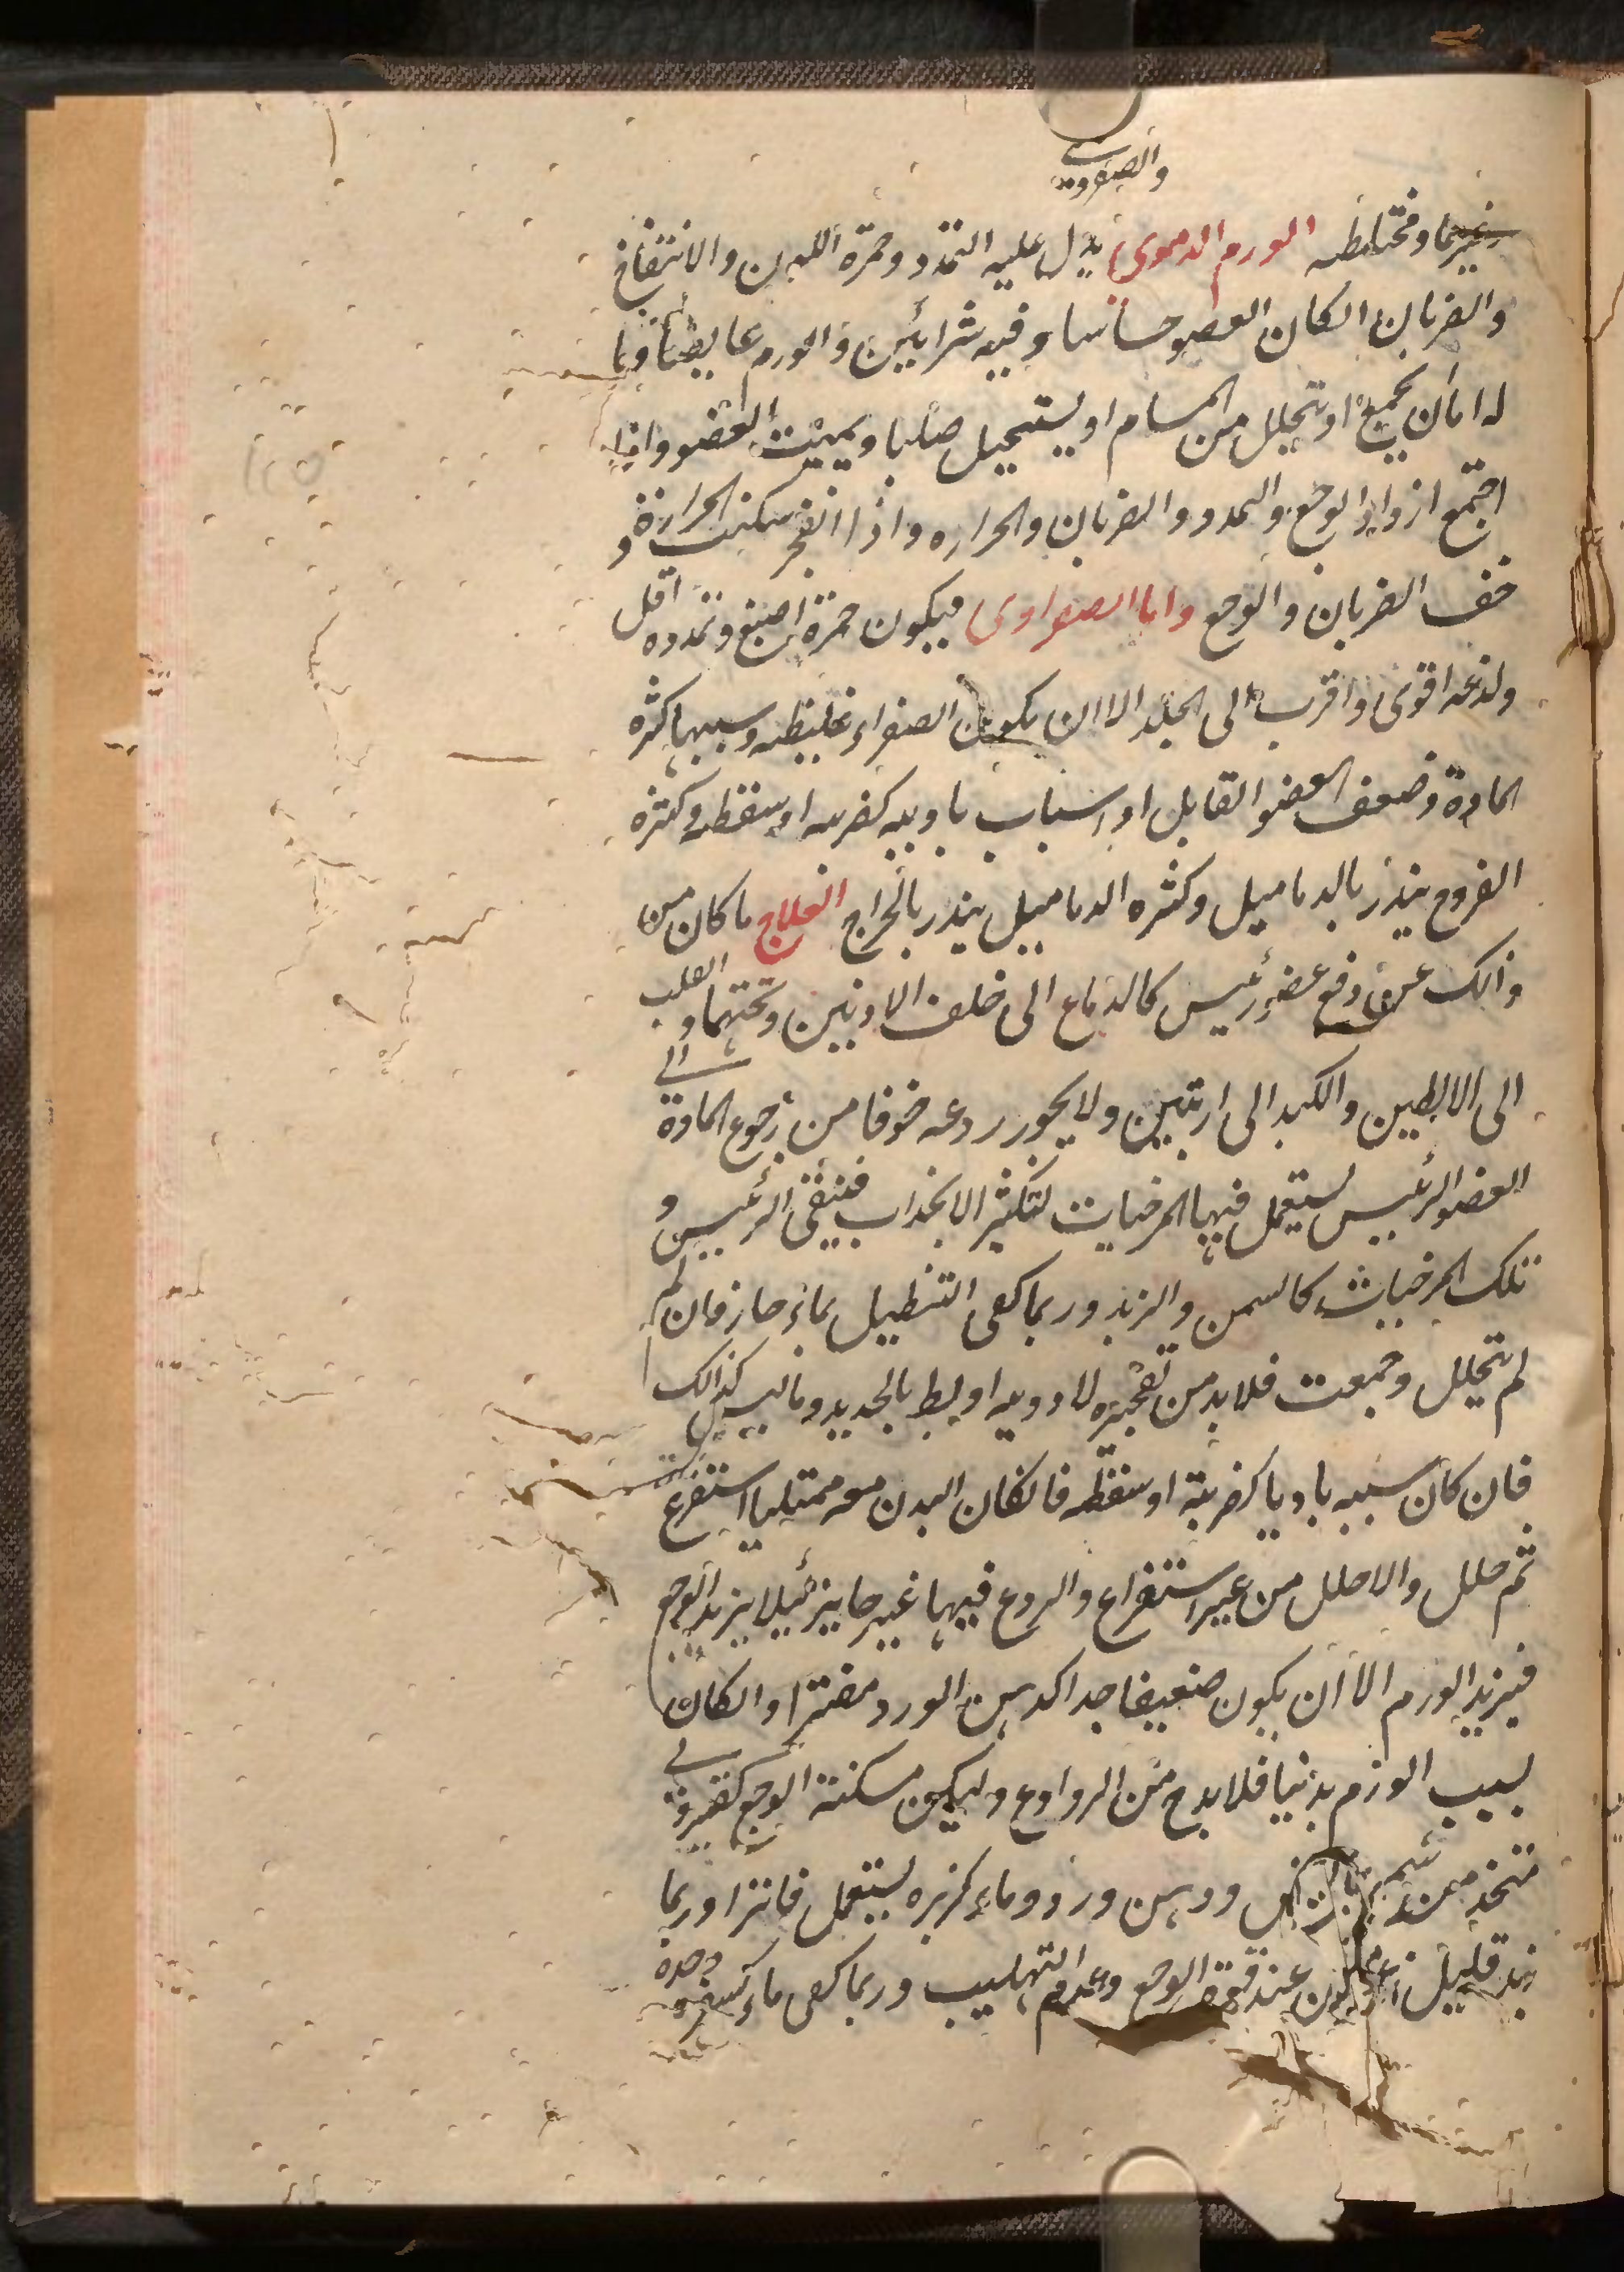 والصفراوى
غيرها ومختلطه الورم الدموى يدل عليه التمدد وحمرة اللون والانتفاخ
والضربان الكان العضو حساسا وفيه شرائين والورم غايصا وما
له اما ان يجمع او يتحلل من المسام او يستحيل صلبا ويميت العضو واذا
اجتمع ازداد الوجع والتمدد والضربان والحراره واذا انفجر سكنت الحرارة و
خف الضربان والوجع واما الصفراوى فيكون حمرة اصبغ وتمدده اقل
ولذعه اقوى واقرب الى الجلد الا ان يكون الصفراء غليظه وسببها كثره
المادة وضعف العضو القابل او اسباب باديه كضربه او سقطه وكثره
القروح ينذر بالدماميل وكثره الدماميل ينذر بالخراج العلاج ما كان من
ذالك عن دفع عضو رئيس كالدماغ الى خلف الاذنين وتحتهما والقلب
الى
الى الابطين والكبد الى اربتين ولا يجوز ردعه خوفا من رجوع المادة
العضو الرئيس يستعمل فيها المرخيات لتكثير الانجذاب فينقى الرئيس و
تلك المرخيات كالسمن والزبد وربما كفى التنطيل بماء حار فان لم
لم يتحلل وجمعت فلا بد من تفجيره لادويه او بط بالحديد وما ليس كذالك
فان كان سببه باديا كضربة او سقطه فالكان البدن معه ممتليا استفرغ
ثم حلل والا حلل من غير استفراغ والردع فيهما غير جايز ليلا يزيد الوجع
فيزيد الورم الا ان يكون ضعيفا جدا كدهن الورد مفترا والكان
بسبب الورم بدنيا فلا بد ح من الروادع وليكن مسكنة الوجع كقيروطى
متخذ من شمع ودهن ورد وماء كزبره يستعمل فاترا وربما
زيد قليل افيون عند قوة الوجع وعدم التهليب وربما كفى ماء كسفره وحده